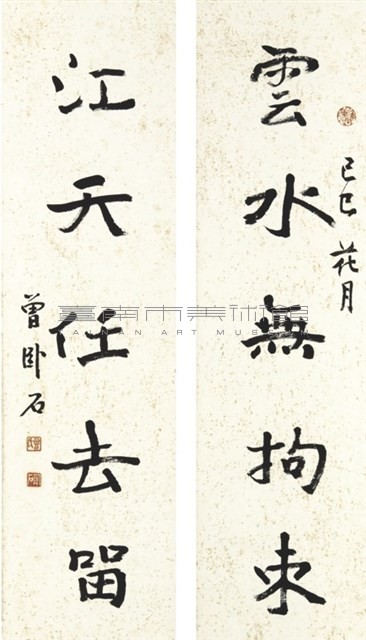 雲水無拘束
己巳花月
江天任去留
曾臥石
臺南市美術館
TAINAN ART MUSEUM